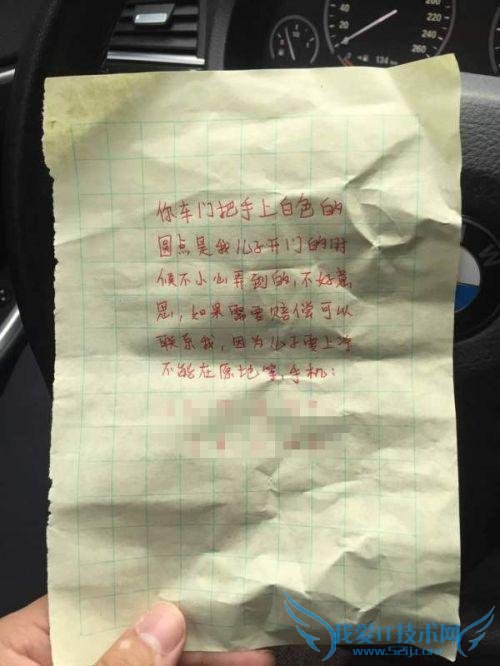 40
20
220
240
260
134
你车门把手上白色的
圆点是我儿子开门的时
候不小心弄到的,不好意
思,如果需要赔偿可以
联系我,因为儿子要上学
不能在原地等,手机:
我爱IT技术网
www.52ij.com